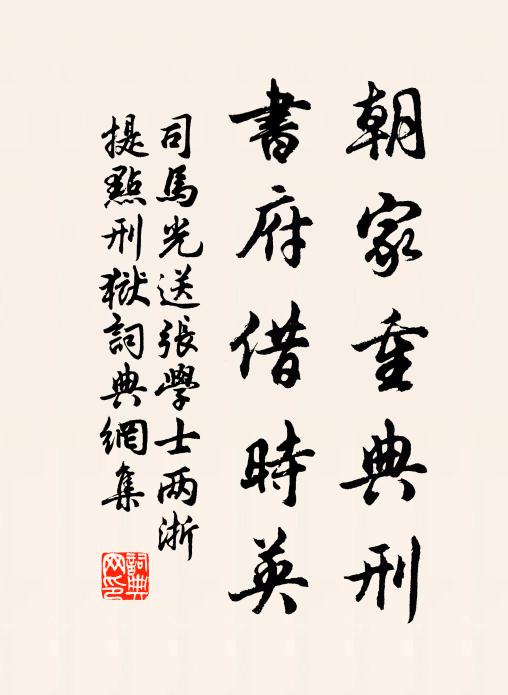 朝家重典刑
書府借時英
司馬光送張學士两浙
提點刑獄詞典網集
詞典
网印